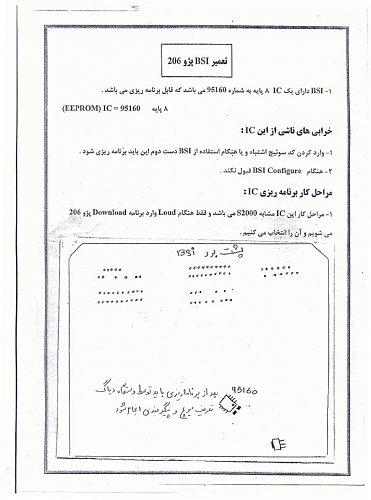 تعمیر BSI پژو 206
۱- BSI دارای یک IC ۸ پایه به شماره 95160 می باشد که قابل برنامه ریزی می باشد .
۸ پایه (EEPROM) IC = 95160
خرابی های ناشی از این IC :
۱- وارد کردن کد سوئیچ اشتباه و یا هنگام استفاده از BSI دست دوم این باید برنامه ریزی شود .
۲- هنگام BSI Configure قبول نکند .
مراحل کار برنامه ریزی IC :
۱- مراحل کار این IC مشابه S2000 می باشد و فقط هنگام Loud وارد برنامه Download پژو 206
می شویم و آن را انتخاب می کنیم .
پشت برد BSI
95160
بعد از برنامه ریزی باید توسط دستگاه دیاگ
تعریف سوئیچ و پیکربندی انجام شود